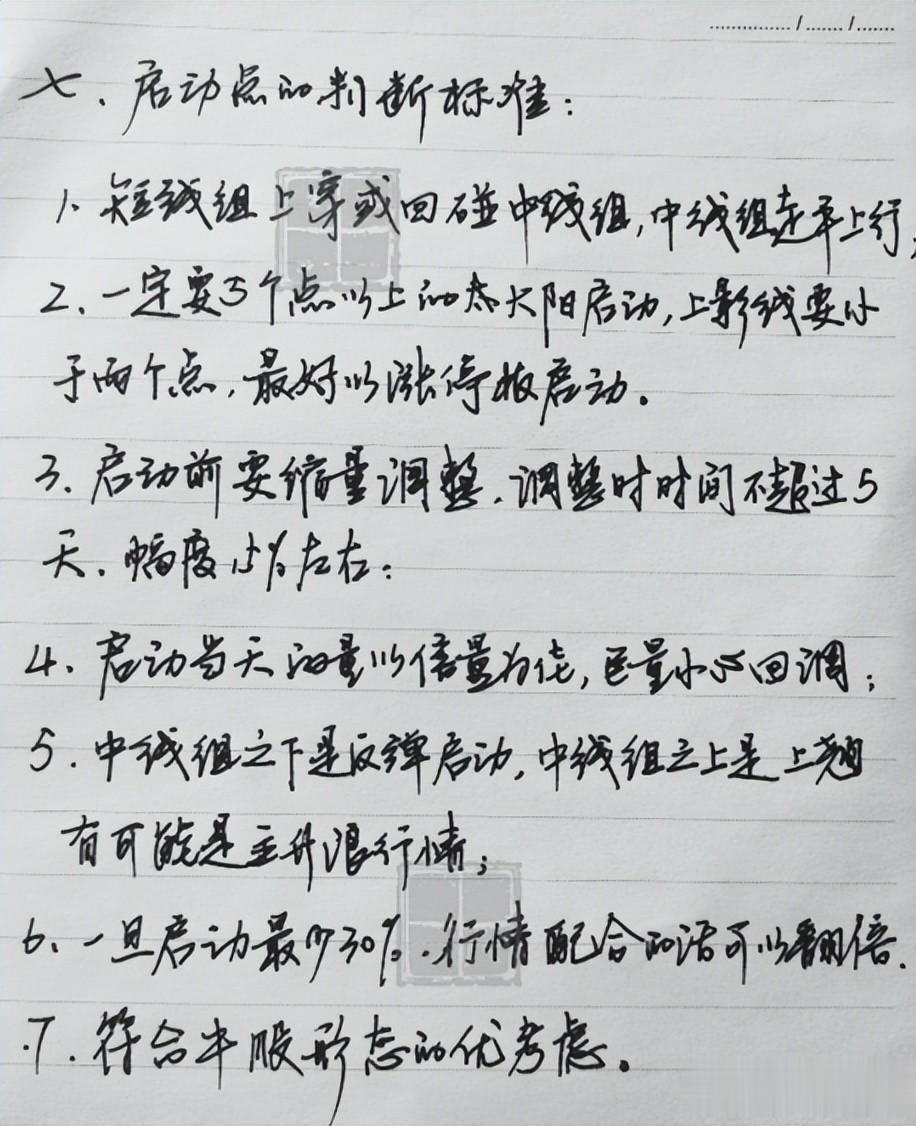 七、启动点的判断标准：
1、短线组上穿或回碰中线组，中线组走平上行；
2、一定要5个点以上的大阳启动，上影线要小
于两个点，最好以涨停板启动。
3、启动前要缩量调整，调整时时间不超过5
天，幅度15%左右；
4、启动当天的量以倍量为佳，巨量小心回调；
5、中线组之下是反弹启动，中线组之上是上翘
有可能是主升浪行情；
6、一旦启动最少30%，行情配合的话可以翻倍．
7、符合牛股形态的优考虑。